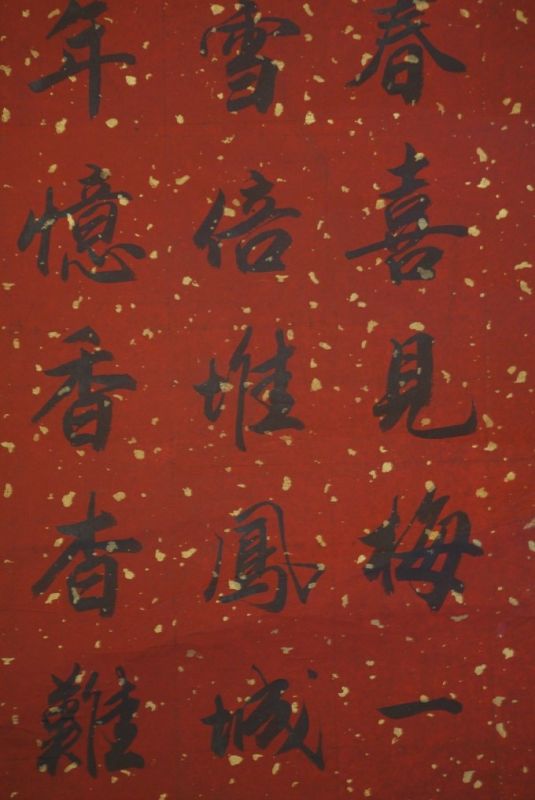 春喜見梅一
雪倍堆鳳城
年憶香杳難